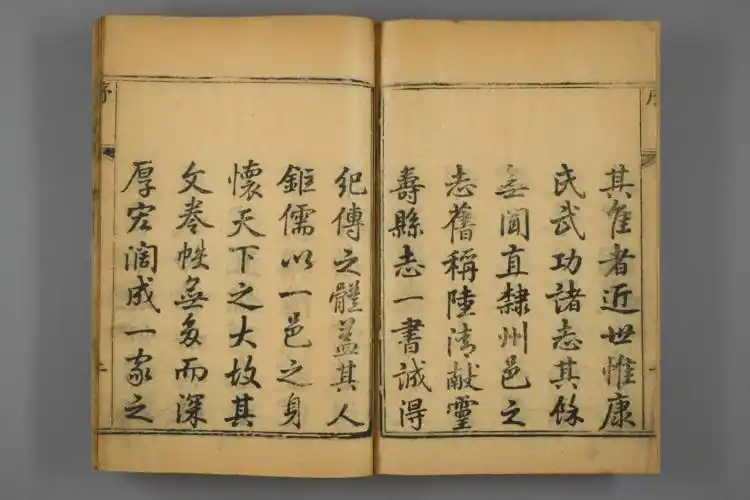 其佳者近世惟康
氏武功諸志其餘
無聞直隸州邑之
志舊稱陸清献靈
壽縣志一書誠得
紀傳之體蓋其人
鉅儒以一邑之身
懷天下之大故其
文卷帙無多而深
厚宏濶成一家之
序